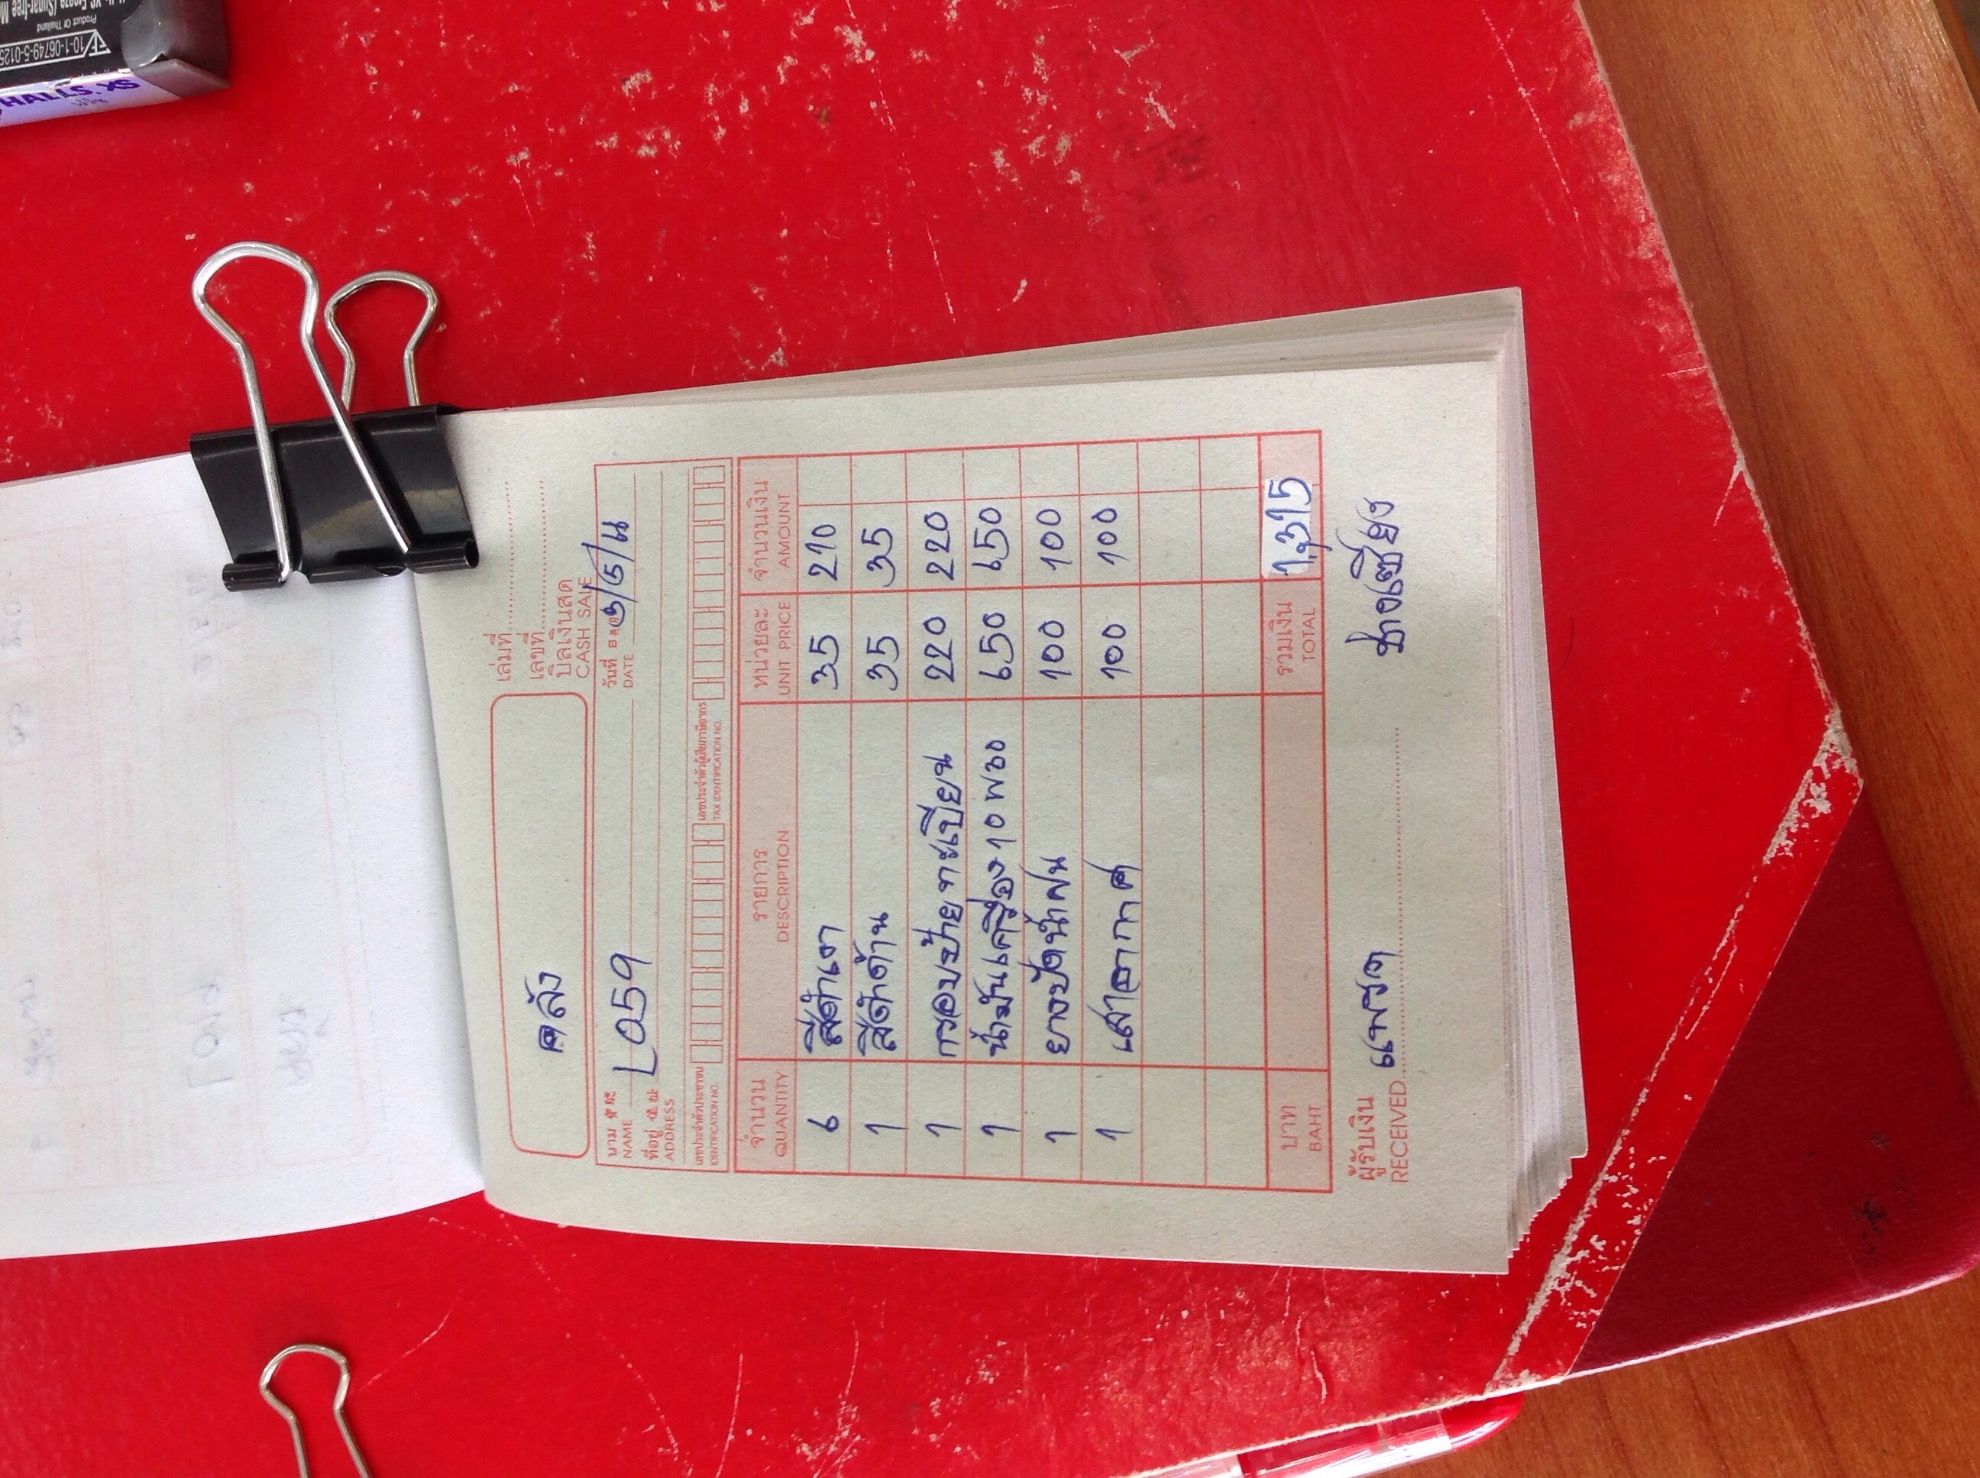 คลัง
เล่มที่
เลขที่
บิลเงินสด
CASH SALE
นาม
NAME
L059
วันที่
DATE
ที่อยู่
ADDRESS
เลขประจำตัวประชาชน
IDENTIFICATION NO.
เลขประจำตัวผู้เสียภาษีอากร
TAX IDENTIFICATION NO.
จำนวน รายการ หน่วยละ จำนวนเงิน
QUANTITY DESCRIPTION UNIT PRICE AMOUNT
6 สีดำเงา 35 210
1 สีดำด้าน 35 35
1 กรอบป้ายทะเบียน 220 220
1 น้ำมันเครื่อง 10 พวง 650 650
1 ยางปัดน้ำฝน 100 100
1 เสาอากาศ 100 100
บาท รวมเงิน 1,315
BAHT TOTAL
ผู้รับเงิน
RECEIVED
ช่างเซียง
HALLS. XS
Product Of Thailand
10-1-06749-5-0125